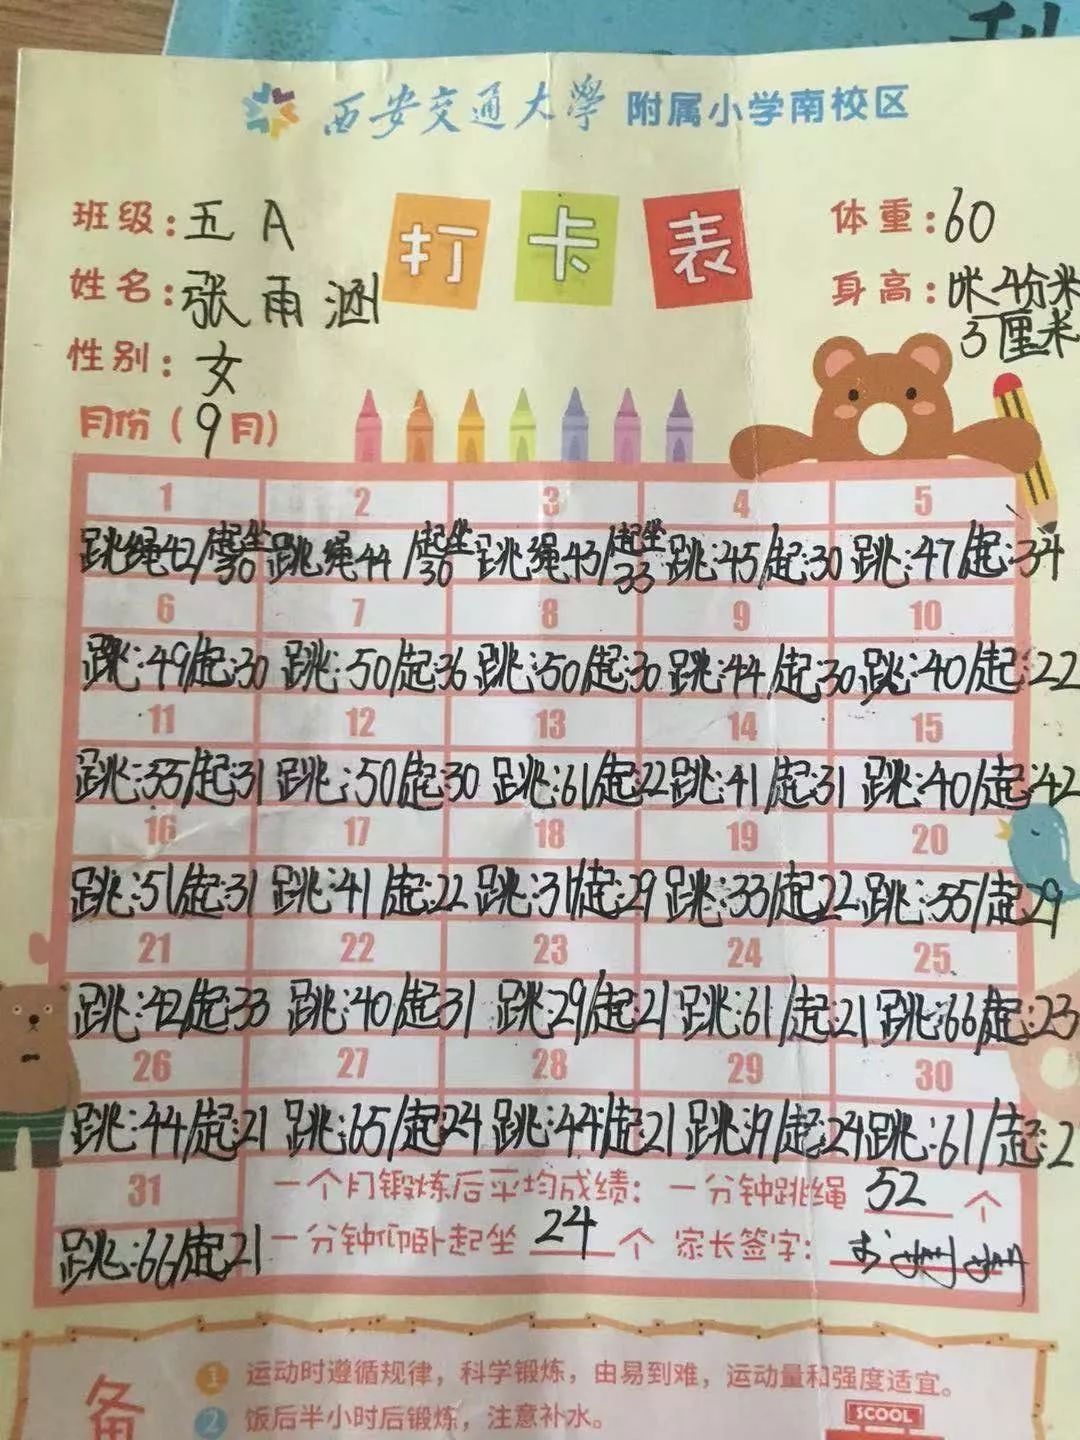 西安交通大学 附属小学南校区
打卡表
班级:五A
姓名:张雨涵
性别:女
月份(9月)
体重:60
身高:1米4分米
3厘米
1 2 3 4 5
跳绳42/起坐30 跳绳44/起坐30 跳绳43/起坐33 跳:45/起:30 跳:47/起:34
6 7 8 9 10
跳:49/起:30 跳:50/起:36 跳:50/起:30 跳:44/起:30 跳:40/起:22
11 12 13 14 15
跳:55/起:31 跳:50/起:30 跳:61/起:22 跳:41/起:31 跳:40/起:42
16 17 18 19 20
跳:51/起:31 跳:41/起:22 跳:31/起:29 跳:33/起:22 跳:55/起:29
21 22 23 24 25
跳:42/起:33 跳:40/起:31 跳:29/起:21 跳:61/起:21 跳:66/起:23
26 27 28 29 30
跳:44/起:21 跳:65/起:24 跳:44/起:21 跳:19/起:24 跳:61/起:2
31 一个月锻炼后平均成绩: 一分钟跳绳 52 个
跳:66/起21 一分钟仰卧起坐 24 个 家长签字:
备
1 运动时遵循规律,科学锻炼,由易到难,运动量和强度适宜。
2 饭后半小时后锻炼,注意补水。
SCOOL